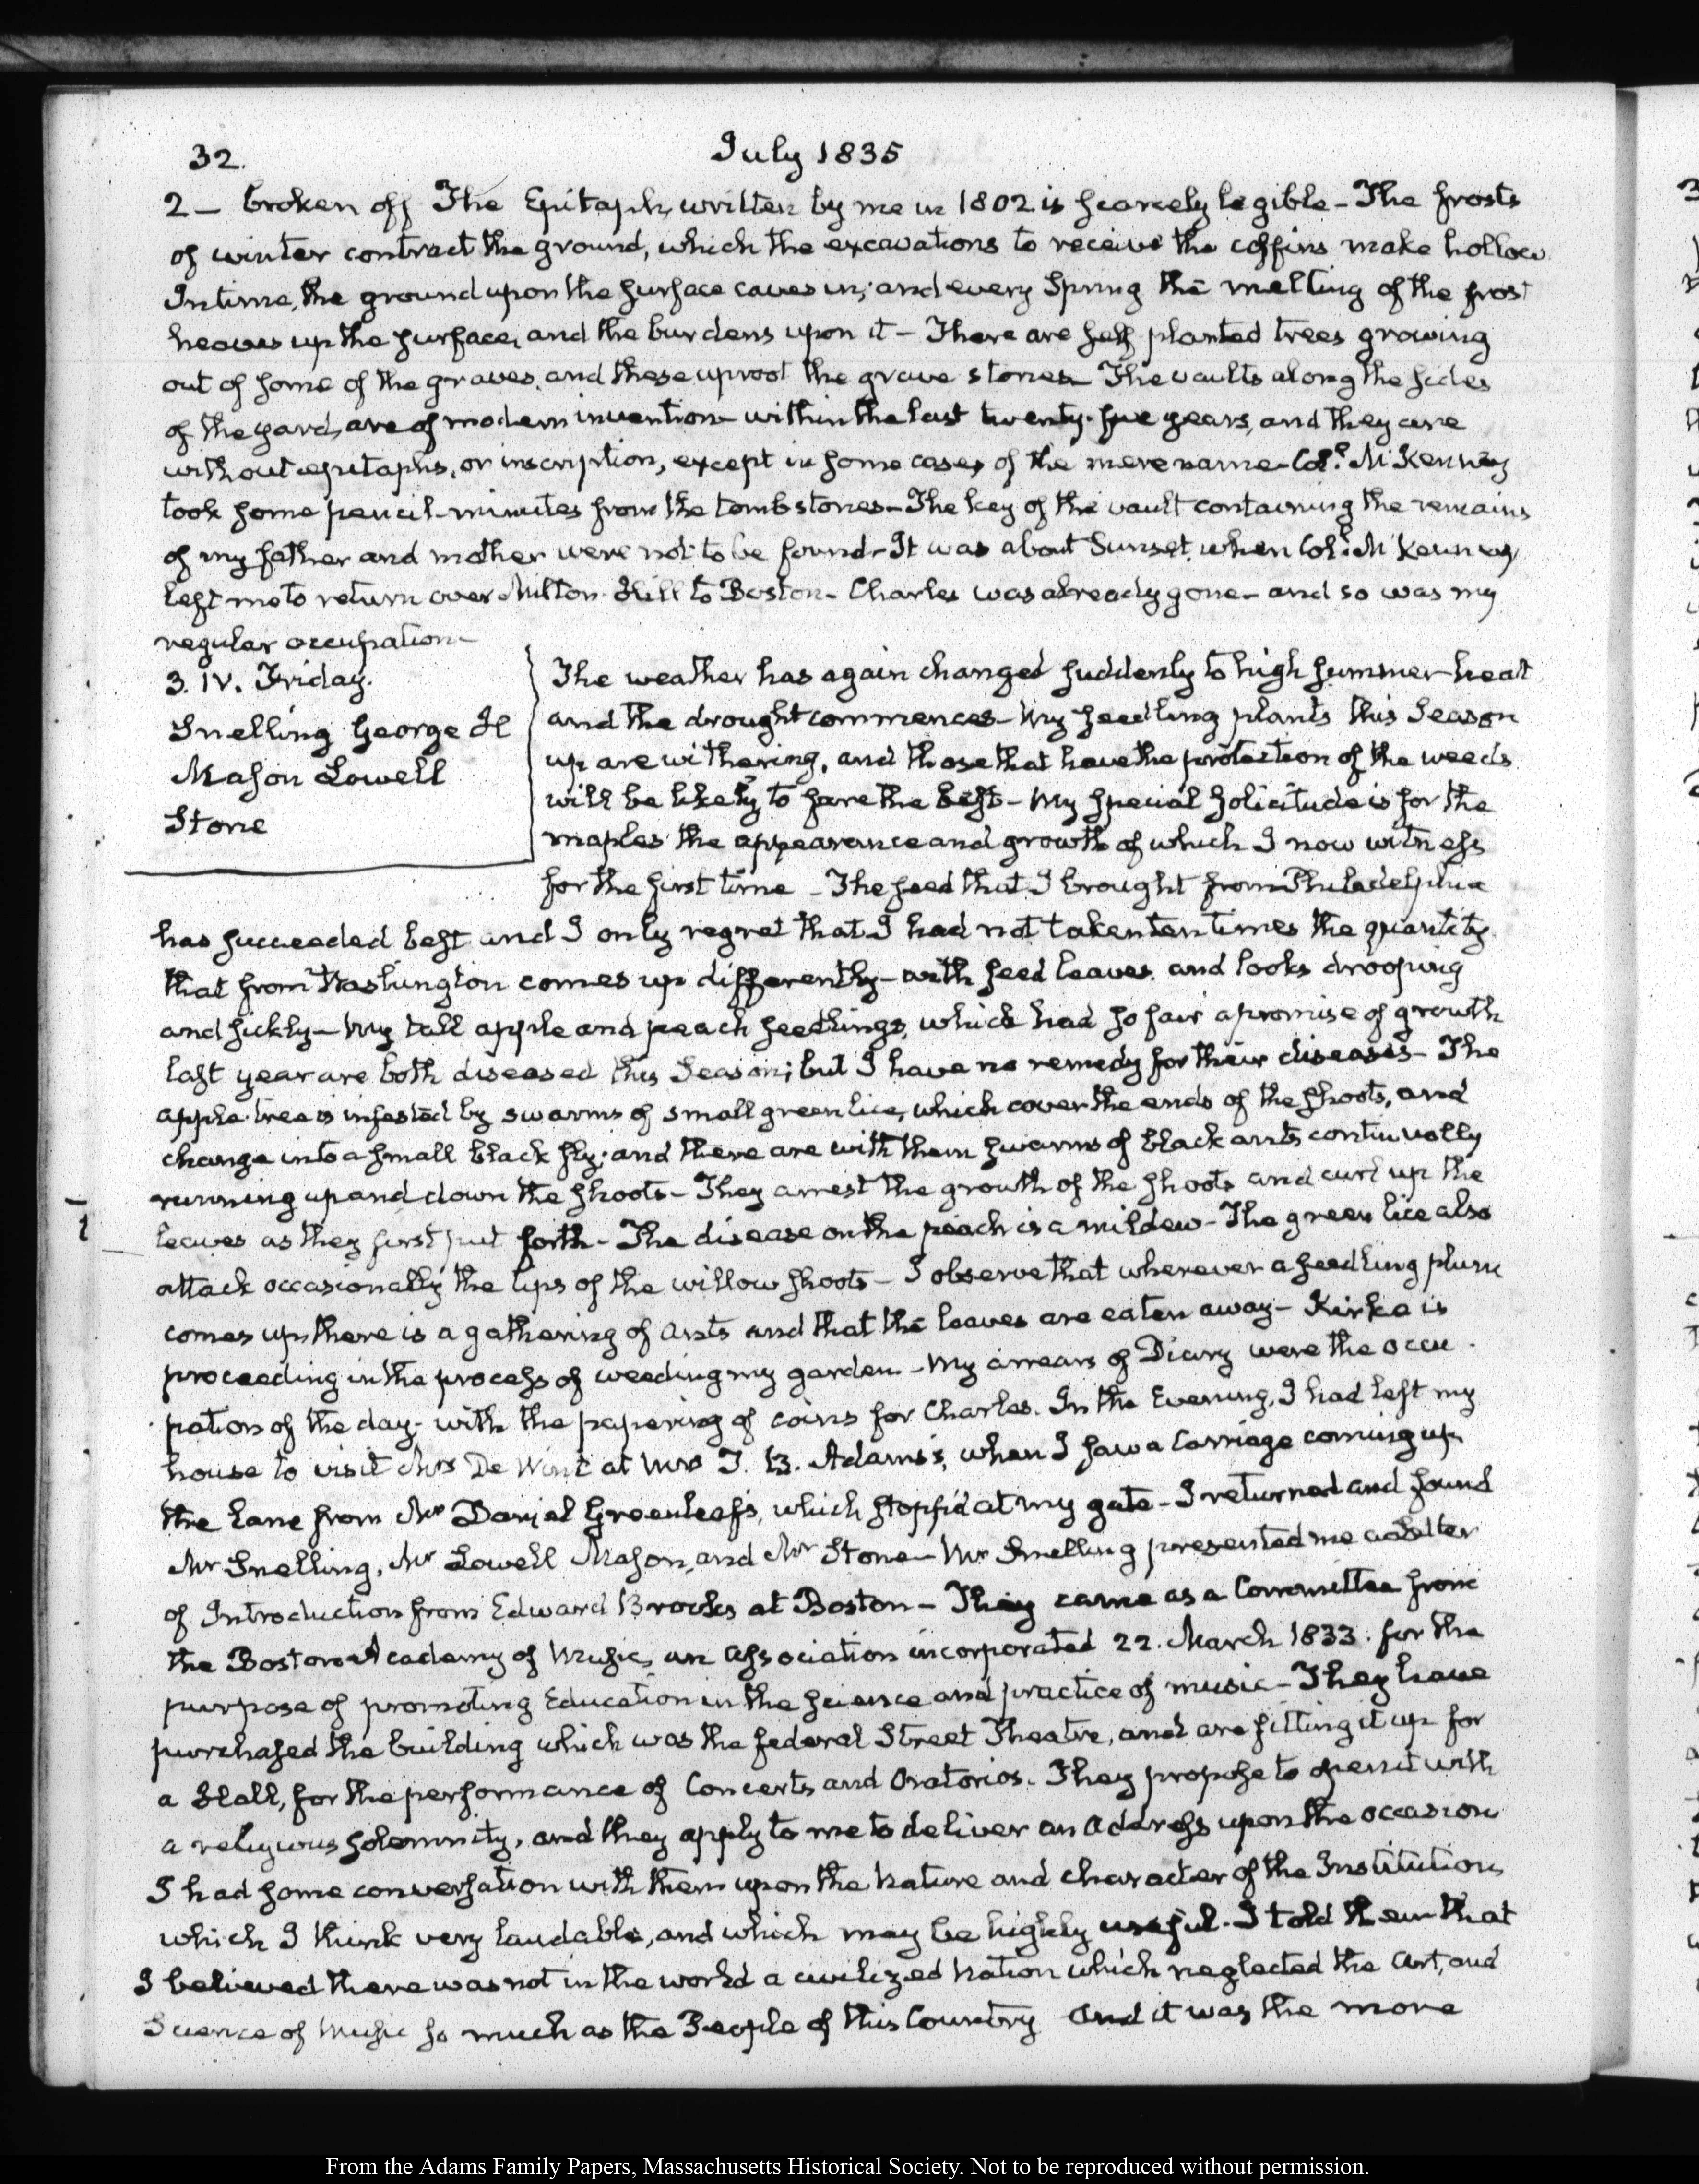 32.
July 1835
2 — broken off The Epitaph, written by me in 1802 is scarcely legible – The frosts
of winter contract the ground, which the excavations to receive the coffins make hollow
In time, the ground upon the surface caves in; and every Spring the melting of the frost
heaves up the surface, and the burdens upon it – There are self planted trees growing
out of some of the graves, and these uproot the grave stones – The vaults along the sides
of the yard, are of modern invention – within the last twenty-five years, and they are
without epitaphs, or inscription, except in some cases of the mere name – Coll. McKenney
took some pencil-minutes from the tombstones – The key of the vault containing the remains
of my father and mother were not to be found – It was about Sunset, when Coll. McKenney
left me to return over Milton Hill to Boston – Charles was already gone – and so was my
regular occupation –
3. IV. Friday.
Snelling George H
Mason Lowell
Stone
The weather has again changed suddenly to high summer-heat
and the drought commences – My seedling plants this Season
up are withering, and those that have the protection of the weeds
will be likely to fare the best – My special solicitude is for the
maples the appearance and growth of which I now witness
for the first time – The seed that I brought from Philadelphia
has succeeded best and I only regret that I had not taken ten times the quantity.
that from Washington comes up differently – with seed leaves, and looks drooping
and sickly – My tall apple and peach seedlings, which had so fair a promise of growth
last year are both diseased this Season; but I have no remedy for their diseases – The
apple-tree is infested by swarms of small green lice, which cover the ends of the shoots, and
change into a small black fly; and there are with them swarms of black ants continually
running up and down the shoots – They arrest the growth of the shoots and curl up the
leaves as they first put forth – The disease on the peach is a mildew – The green lice also
attack occasionally the tips of the willow shoots – I observe that wherever a seedling plum
comes up there is a gathering of ants and that the leaves are eaten away – Kirke is
proceeding in the process of weeding my garden – My arrears of Diary were the occu-
pation of the day – with the papering of coins for Charles. In the Evening, I had left my
house to visit Mrs De Wint at Mrs T. B. Adams's, when I saw a Carriage coming up
the Lane from Mr Daniel Greenleaf's, which stopp'd at my gate – I returned and found
Mr Snelling, Mr Lowell Mason, and Mr Stone – Mr Snelling presented me a Letter
of Introduction from Edward Brooks at Boston – They came as a Committee from
the Boston Academy of Music, an Association incorporated 22. March 1833. for the
purpose of promoting Education in the science and practice of music – They have
purchased the building which was the federal Street Theatre, and are fitting it up for
a Hall, for the performance of Concerts and Oratorios. They propose to open it with
a religious solemnity, and they apply to me to deliver an Address upon the occasion
I had some conversation with them upon the Nature and character of the Institution,
which I think very laudable, and which may be highly useful. I told them that
I believed there was not in the world a civilized Nation which neglected the Art, and
Science of Music so much as the People of this Country and it was the more
From the Adams Family Papers, Massachusetts Historical Society. Not to be reproduced without permission.